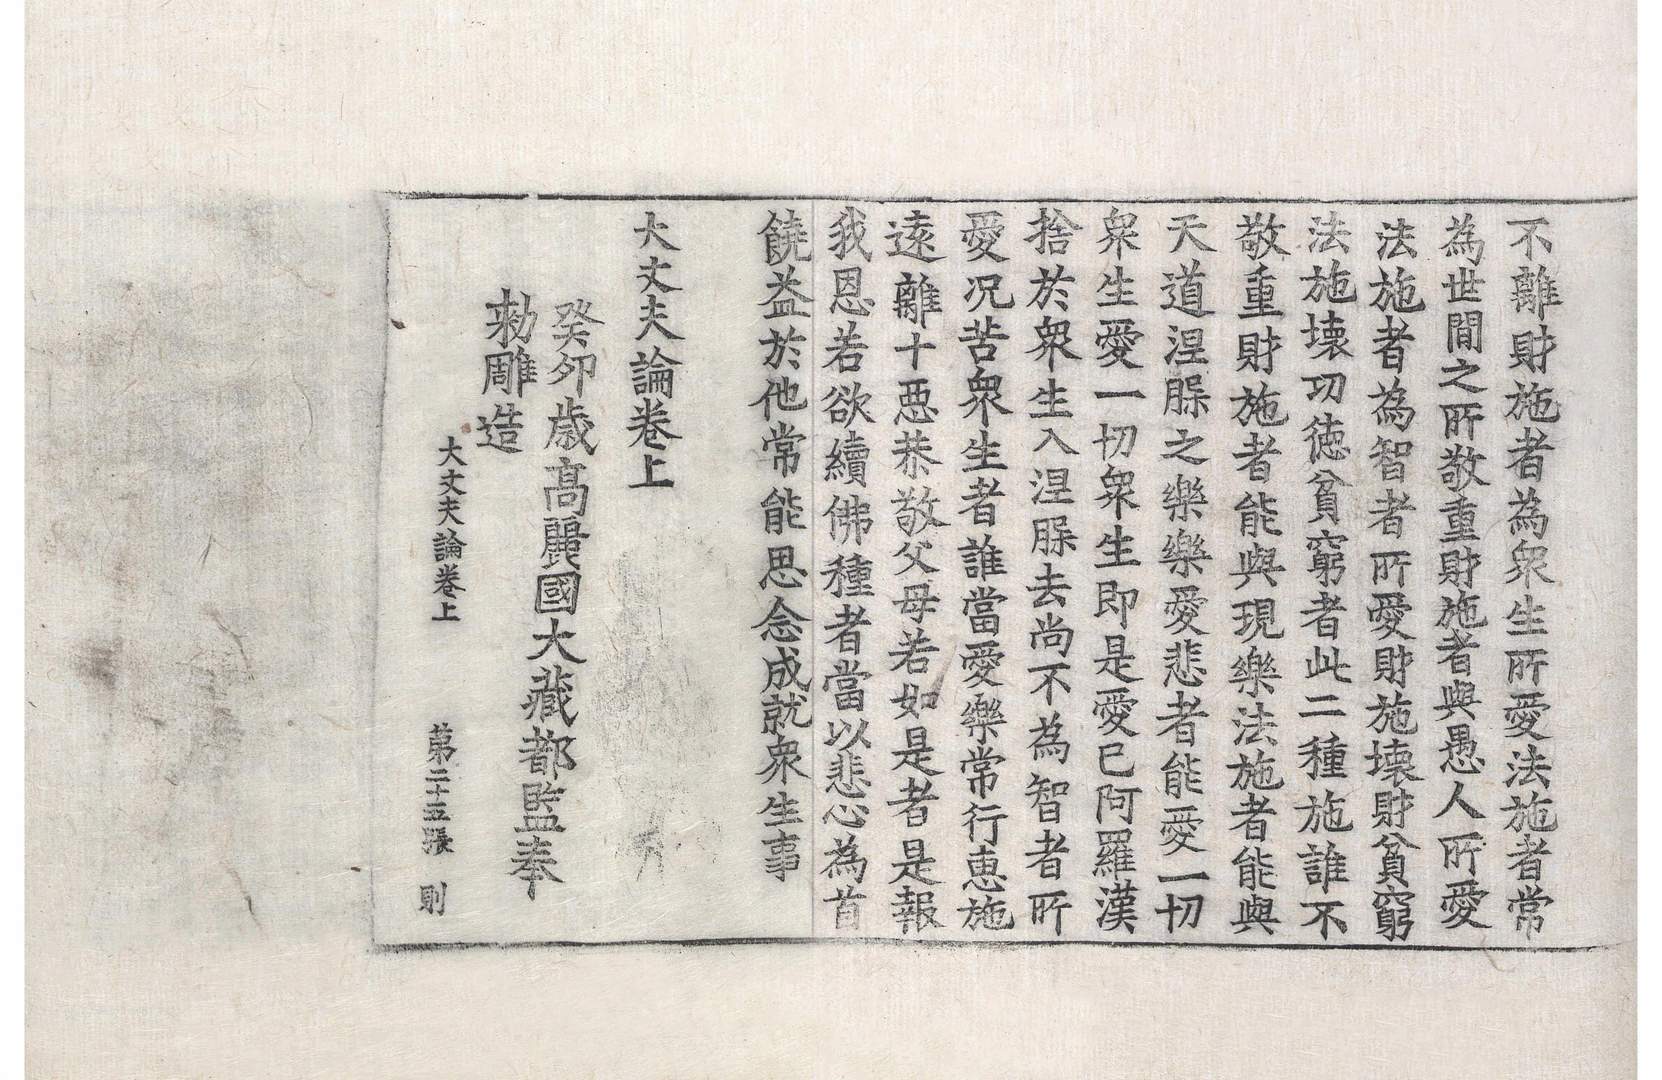 不離財施者為衆生所愛法施者常
為世閒之所敬重財施者與愚人所愛
法施者為智者所愛財施壞財貧窮
法施壞功德貧窮者此二種施誰不
敬重財施者能與現樂法施者能與
天道涅槃之樂樂愛悲者能愛一切
衆生愛一切衆生即是愛已阿羅漢
捨於衆生入涅槃去尚不為智者所
愛况苦衆生者誰當愛樂常行惠施
遠離十惡恭敬父母若如是者是報
我恩若欲續佛種者當以悲心為首
饒益於他常能思念成就衆生事
大丈夫論卷上
癸卯歲高麗國大藏都監奉
勅雕造
大丈夫論卷上 第二十五張 則